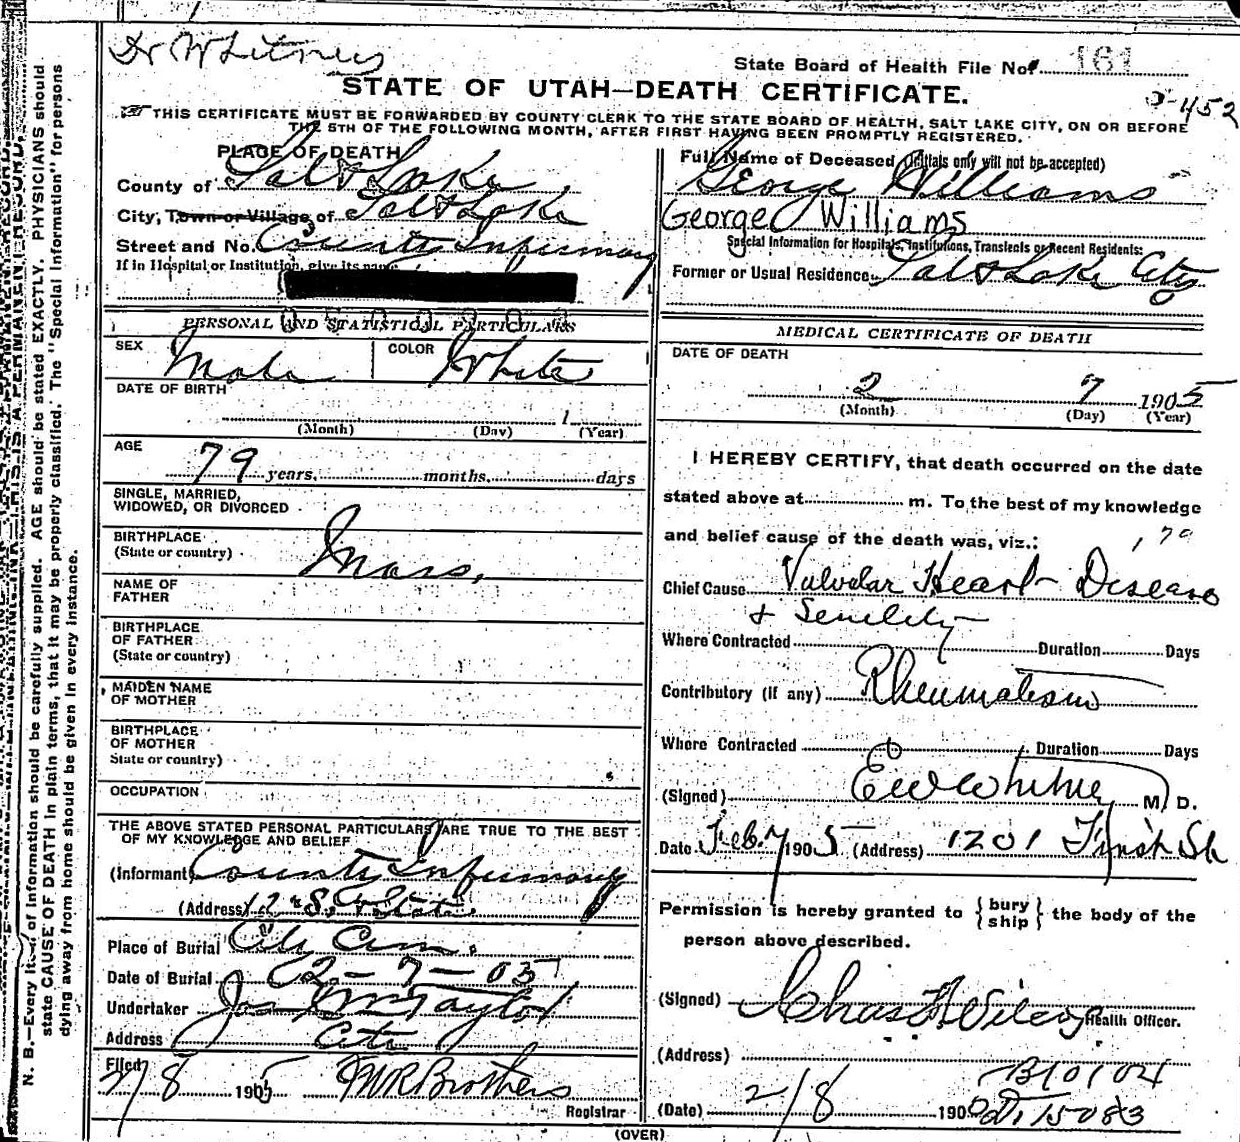 Dr Whitney
State Board of Health File No. 161
STATE OF UTAH—DEATH CERTIFICATE.
D-452
THIS CERTIFICATE MUST BE FORWARDED BY COUNTY CLERK TO THE STATE BOARD OF HEALTH, SALT LAKE CITY, ON OR BEFORE
THE 5TH OF THE FOLLOWING MONTH, AFTER FIRST HAVING BEEN PROMPTLY REGISTERED.
PLACE OF DEATH
County of Salt Lake
City, Town or Village of Salt Lake
Street and No. County Infirmary
If in Hospital or Institution, give its name
Full Name of Deceased (Initials only will not be accepted)
George Williams
George Williams
Special Information for Hospitals, Institutions, Transients or Recent Residents:
Former or Usual Residence Salt Lake City
PERSONAL AND STATISTICAL PARTICULARS
SEX Male COLOR White
DATE OF BIRTH
1
(Month) (Day) (Year)
AGE
79 years, months, days
SINGLE, MARRIED,
WIDOWED, OR DIVORCED
BIRTHPLACE
(State or country) Mass.
NAME OF
FATHER
BIRTHPLACE
OF FATHER
(State or country)
MAIDEN NAME
OF MOTHER
BIRTHPLACE
OF MOTHER
State or country)
OCCUPATION
THE ABOVE STATED PERSONAL PARTICULARS ARE TRUE TO THE BEST
OF MY KNOWLEDGE AND BELIEF
(Informant County Infirmary
(Address) 12th S. State.
Place of Burial City Cem.
Date of Burial 2-7-05
Undertaker Jos Wm Taylor
Address City
Filed
2/8 1905 FMR Brothers
Registrar
MEDICAL CERTIFICATE OF DEATH
DATE OF DEATH
2 7 1905
(Month) (Day) (Year)
I HEREBY CERTIFY, that death occurred on the date
stated above at m. To the best of my knowledge
and belief cause of the death was, viz.:
79
Chief Cause Valvular Heart Disease
+ Senility
Where Contracted Duration Days
Contributory (if any) Rheumatism
Where Contracted Duration Days
(Signed) E W Whitney M. D.
Date Feb. 7 1905 (Address) 1201 First St
Permission is hereby granted to { bury ship } the body of the
person above described.
(Signed) Chas F Wilcox Health Officer.
(Address)
B10104
(Date) 2/8 190 15083
(OVER)
N. B.—Every item of information should be carefully supplied. AGE should be stated EXACTLY. PHYSICIANS should
state CAUSE OF DEATH in plain terms, that it may be properly classified. The "Special Information" for persons
dying away from home should be given in every instance.